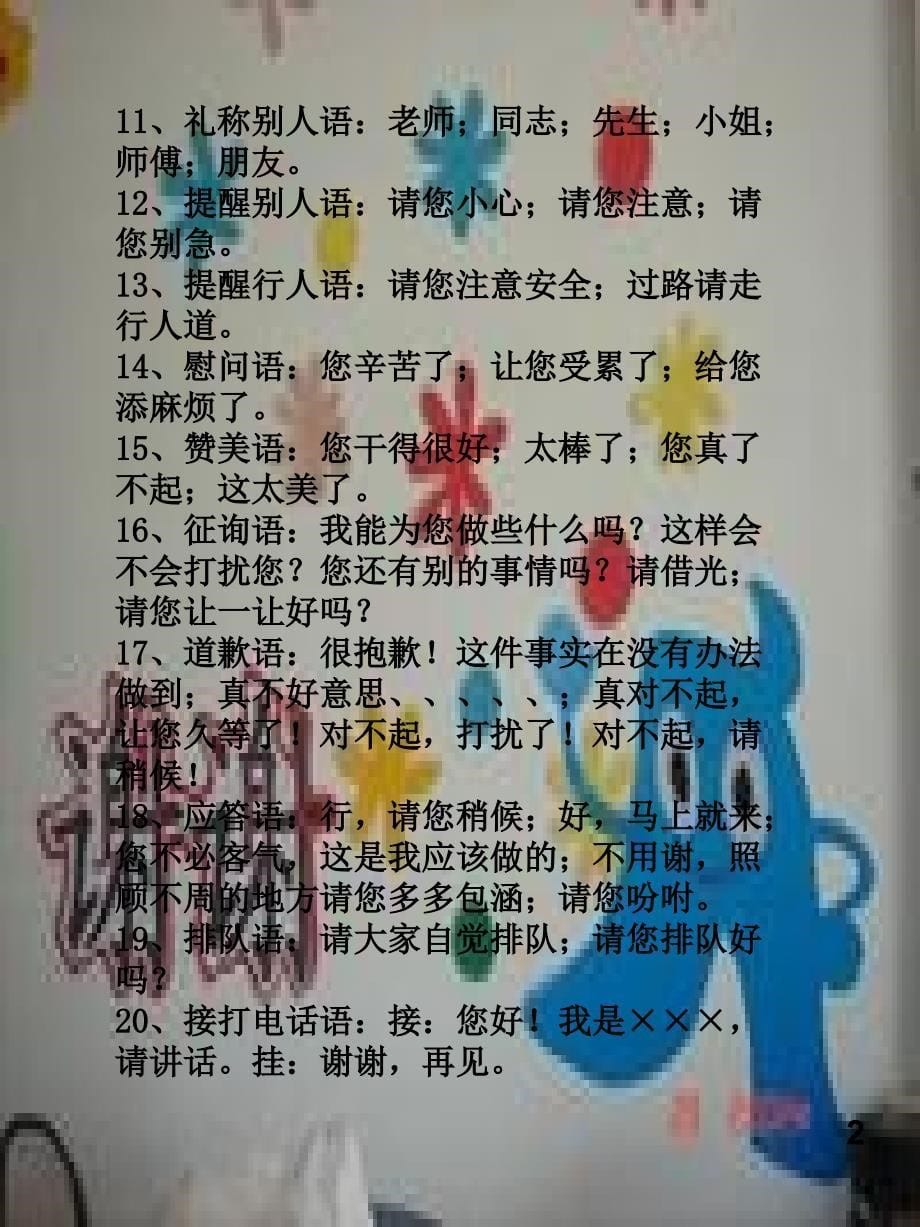 11、礼称别人语：老师；同志；先生；小姐；
师傅；朋友。
12、提醒别人语：请您小心；请您注意；请
您别急。
13、提醒行人语：请您注意安全；过路请走
行人道。
14、慰问语：您辛苦了；让您受累了；给您
添麻烦了。
15、赞美语：您干得很好；太棒了；您真了
不起；这太美了。
16、征询语：我能为您做些什么吗？这样会
不会打扰您？您还有别的事情吗？请借光；
请您让一让好吗？
17、道歉语：很抱歉！这件事实在没有办法
做到；真不好意思、、、、、；真对不起，
让您久等了！对不起，打扰了！对不起，请
稍候！
18、应答语：行，请您稍候；好，马上就来；
您不必客气，这是我应该做的；不用谢，照
顾不周的地方请您多多包涵；请您吩咐。
19、排队语；请大家自觉排队；请您排队好
吗？
20、接打电话语：接：您好！我是×××，
请讲话。挂：谢谢，再见。
2